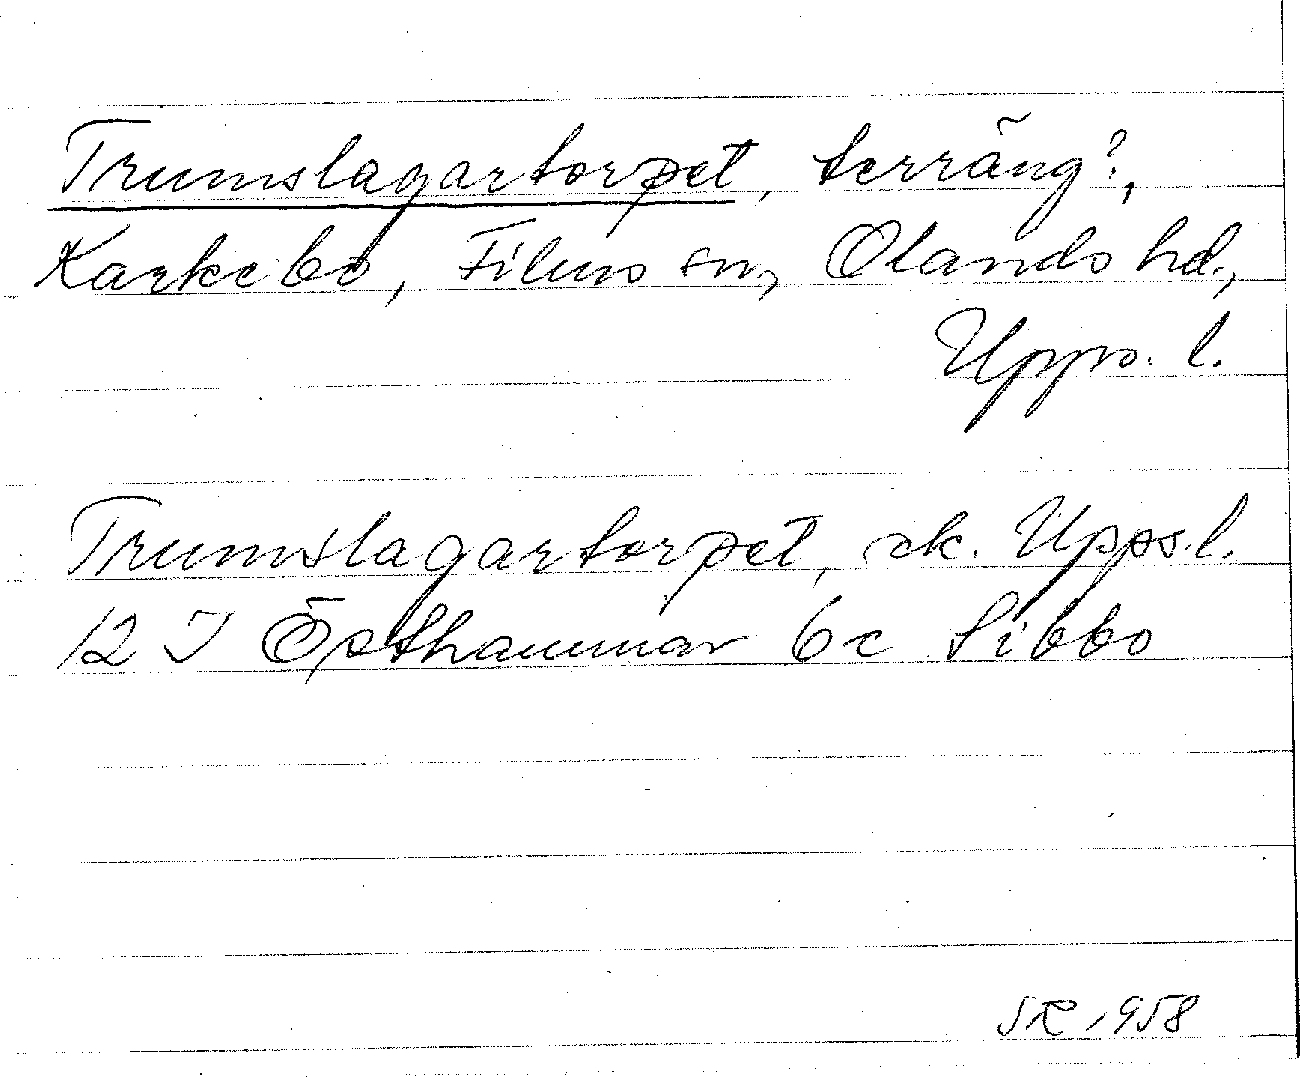 Trumslagartorpet, terräng?,
Karkebo, Films sn, Olands hd.,
Upps. l.
Trumslagartorpet, ek. Upps. l.
12 I Östhammar 6c Sibbo
SR 1958